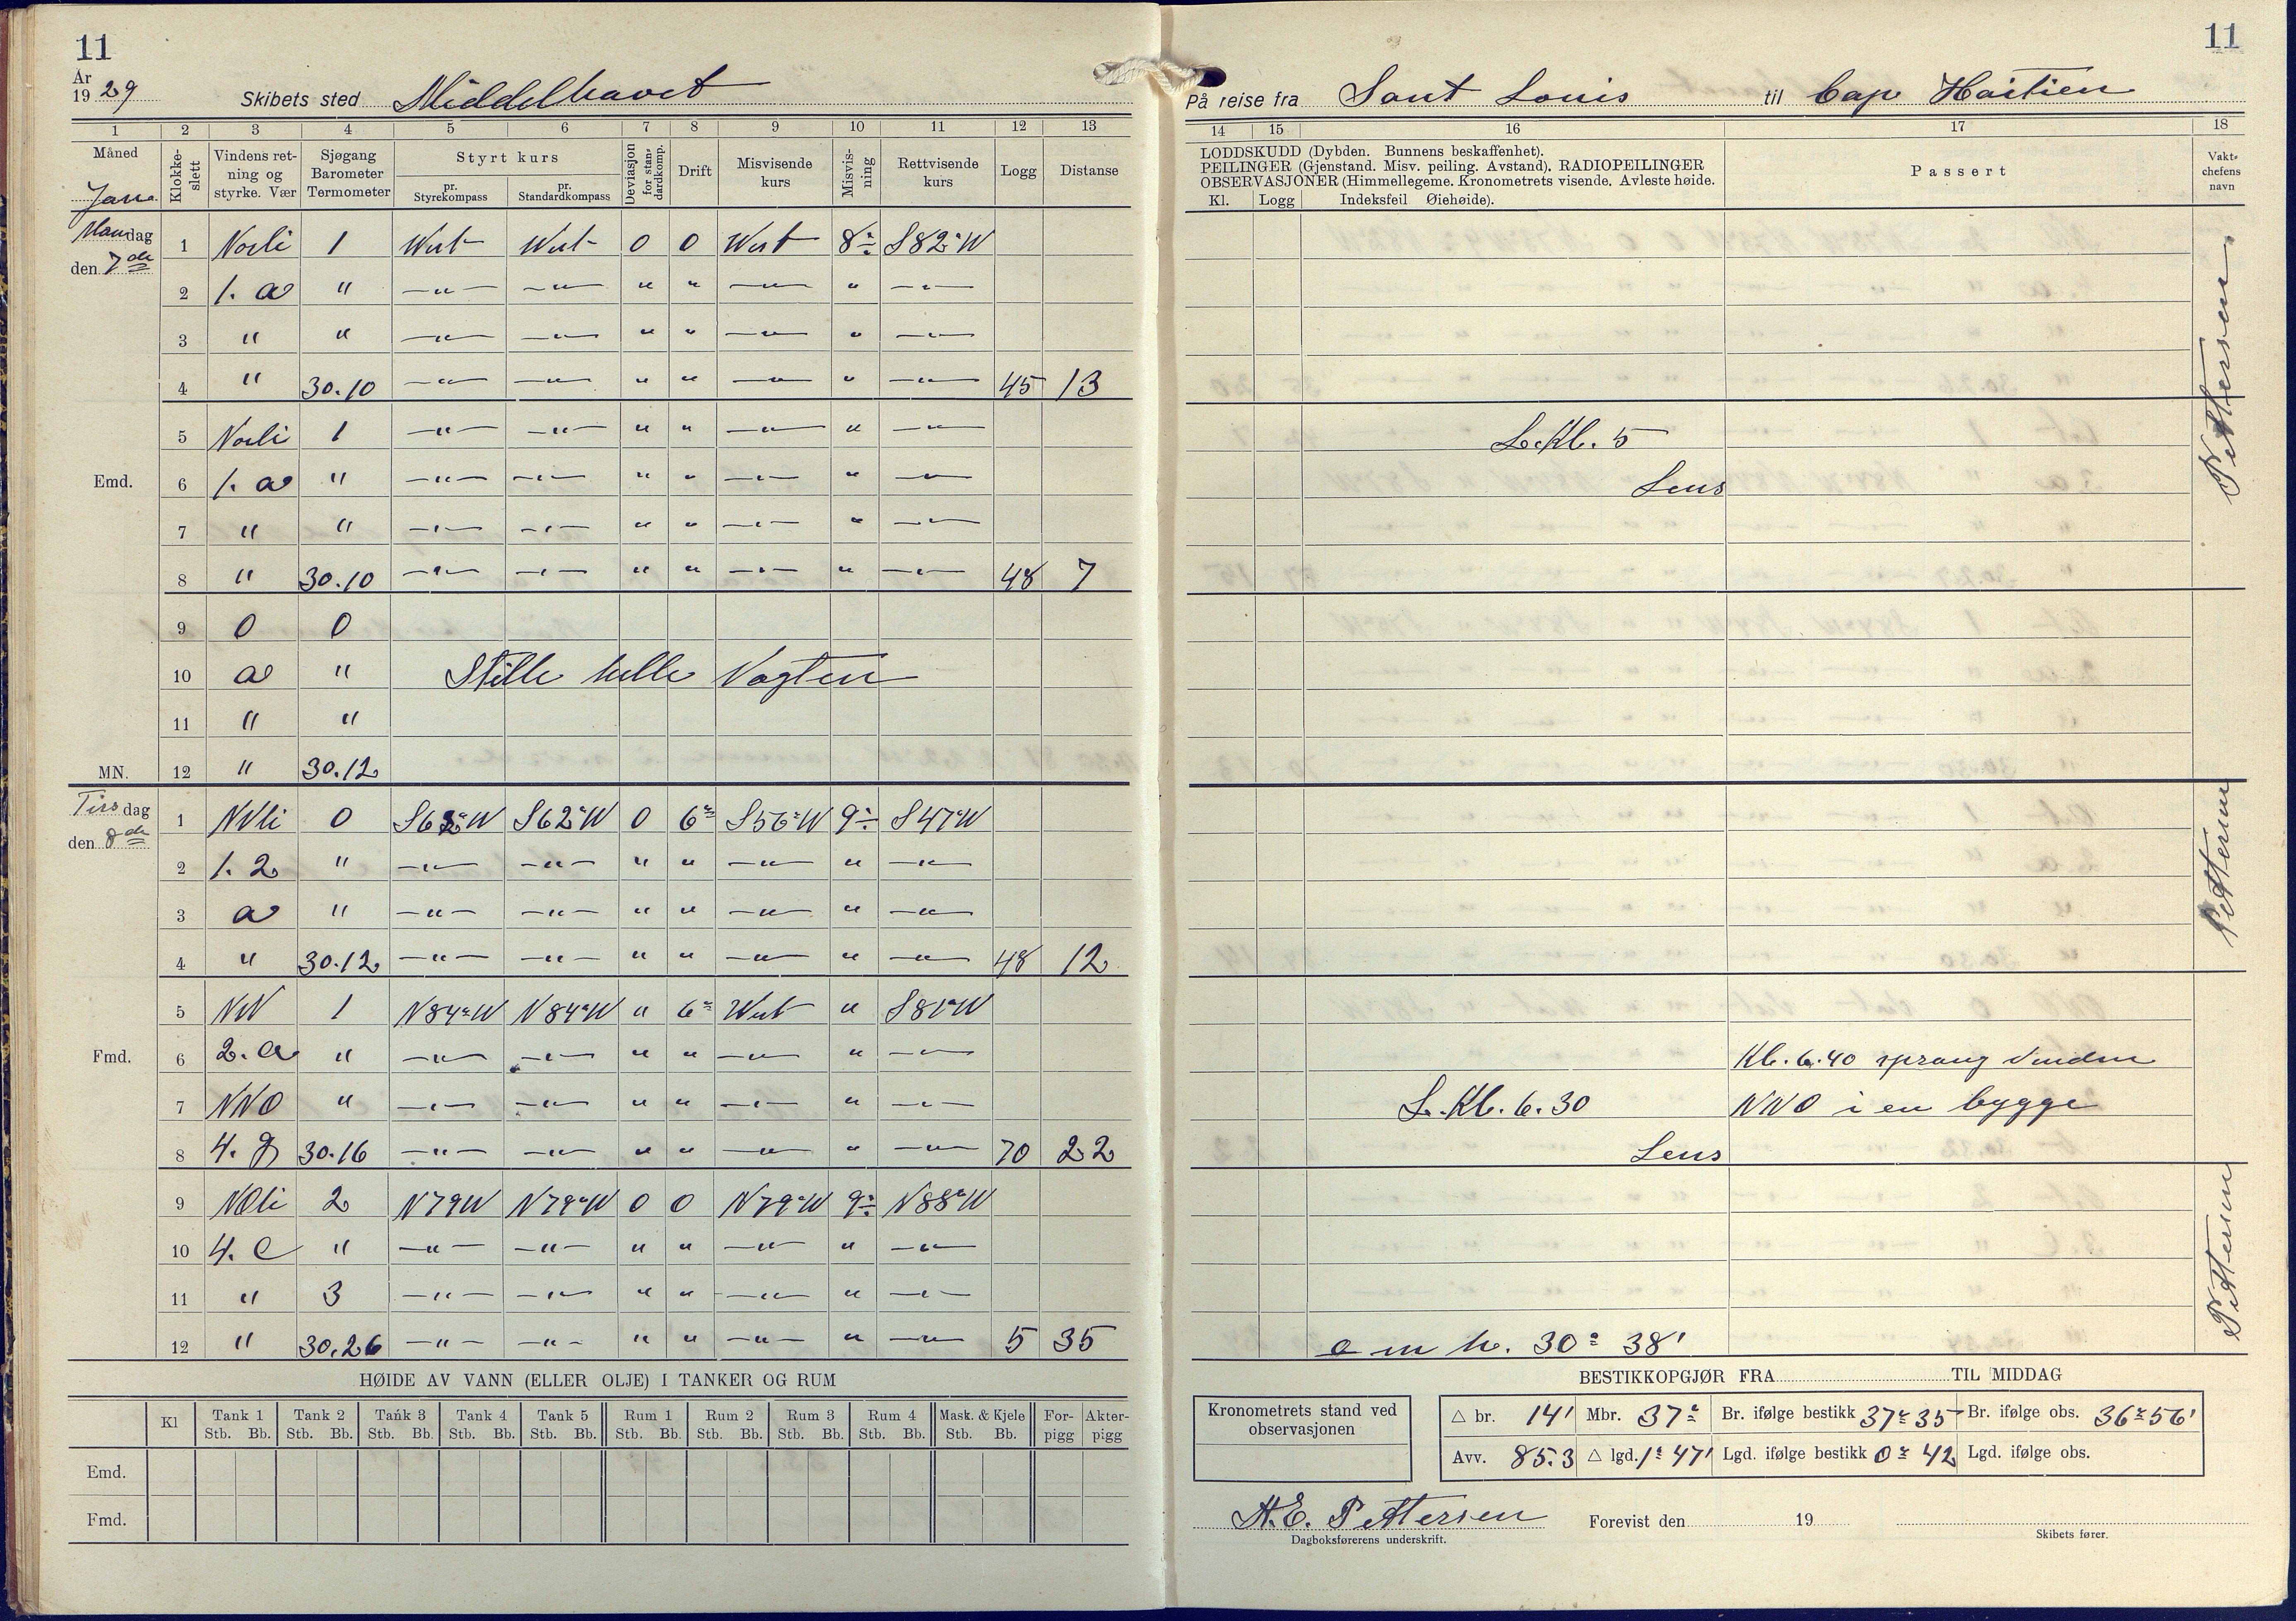 11
År
1929
Skibets sted Middelhavet
1 2 3 4 5 6 7 8 9 10 11 12 13
Måned
Klokke-slett
Vindens ret-ning og styrke. Vær
Sjøgang Barometer Termometer
Styrt kurs
pr. Styrekompass
pr. Standardkompass
Deviasjon for stan-dardkomp.
Drift
Misvisende kurs
Misvis-ning
Rettvisende kurs
Logg
Distanse
Jan.
Mandag
den 7de
1 Norli 1 West West 0 0 West 8° ÷ S82°W
2 1. a " —"— —"— " " —"— " —"—
3 " " —"— —"— " " —"— " —"—
4 " 30.10 —"— —"— " " —"— " —"— 45 13
5 Norli 1 —"— —"— " " —"— " —"—
Emd. 6 1. a " —"— —"— " " —"— " —"—
7 " " —"— —"— " " —"— " —"—
8 " 30.10 —"— —"— " " —"— " —"— 48 7
9 0 0
10 a " Stille helle Vagten
11 " "
MN. 12 " 30.12
Tirsdag
den 8de
1 NVli 0 S62°W S62°W 0 6° S56°W 9° ÷ S47°W
2 1. 2 " —"— —"— " " —"— " —"—
3 a " —"— —"— " " —"— " —"—
4 " 30.12 —"— —"— " " —"— " —"— 48 12
5 NV 1 N84°W N84°W " 6° West " S81°W
Fmd. 6 2. a " —"— —"— " " —"— " —"—
7 NNO " —"— —"— " " —"— " —"—
8 4. g 30.16 —"— —"— " " —"— " —"— 70 22
9 NOli 2 N79W N79°W 0 0 N79°W 9° ÷ N88°W
10 4. c " —"— —"— " " —"— " —"—
11 " 3 —"— —"— " " —"— " —"—
12 " 30.26 —"— —"— " " —"— " —"— 5 35
HØIDE AV VANN (ELLER OLJE) I TANKER OG RUM
Kl Tank 1 Tank 2 Tank 3 Tank 4 Tank 5 Rum 1 Rum 2 Rum 3 Rum 4 Mask. & Kjele For-pigg Akter-pigg
Stb. Bb. Stb. Bb. Stb. Bb. Stb. Bb. Stb. Bb. Stb. Bb. Stb. Bb. Stb. Bb. Stb. Bb. Stb. Bb.
Emd.
Fmd.
11
På reise fra Sant Louis til Cap Haitien
14 15 16 17 18
LODDSKUDD (Dybden. Bunnens beskaffenhet).
PEILINGER (Gjenstand. Misv. peiling. Avstand). RADIOPEILINGER
OBSERVASJONER (Himmellegeme. Kronometrets visende. Avleste høide).
Kl. Logg Indeksfeil Øiehøide).
Passert
Vakt-chefens navn
Pettersen
L. Kl. 5
Lens
Pettersen
Kl. 6.40 sprang Vinden
L. Kl. 6.30 NNO i en bygge
Lens
Pettersen
o m h. 30° 38'
BESTIKKOPGJØR FRA TIL MIDDAG
Kronometrets stand ved observasjonen
△ br. 14' Mbr. 37° Br. ifølge bestikk 37° 35 Br. ifølge obs. 36° 56'
Avv. 85.3 △ lgd. 1° 47' Lgd. ifølge bestikk 0° 42 Lgd. ifølge obs.
H.E. Pettersen
Dagboksførerens underskrift.
Forevist den 19
Skibets fører.